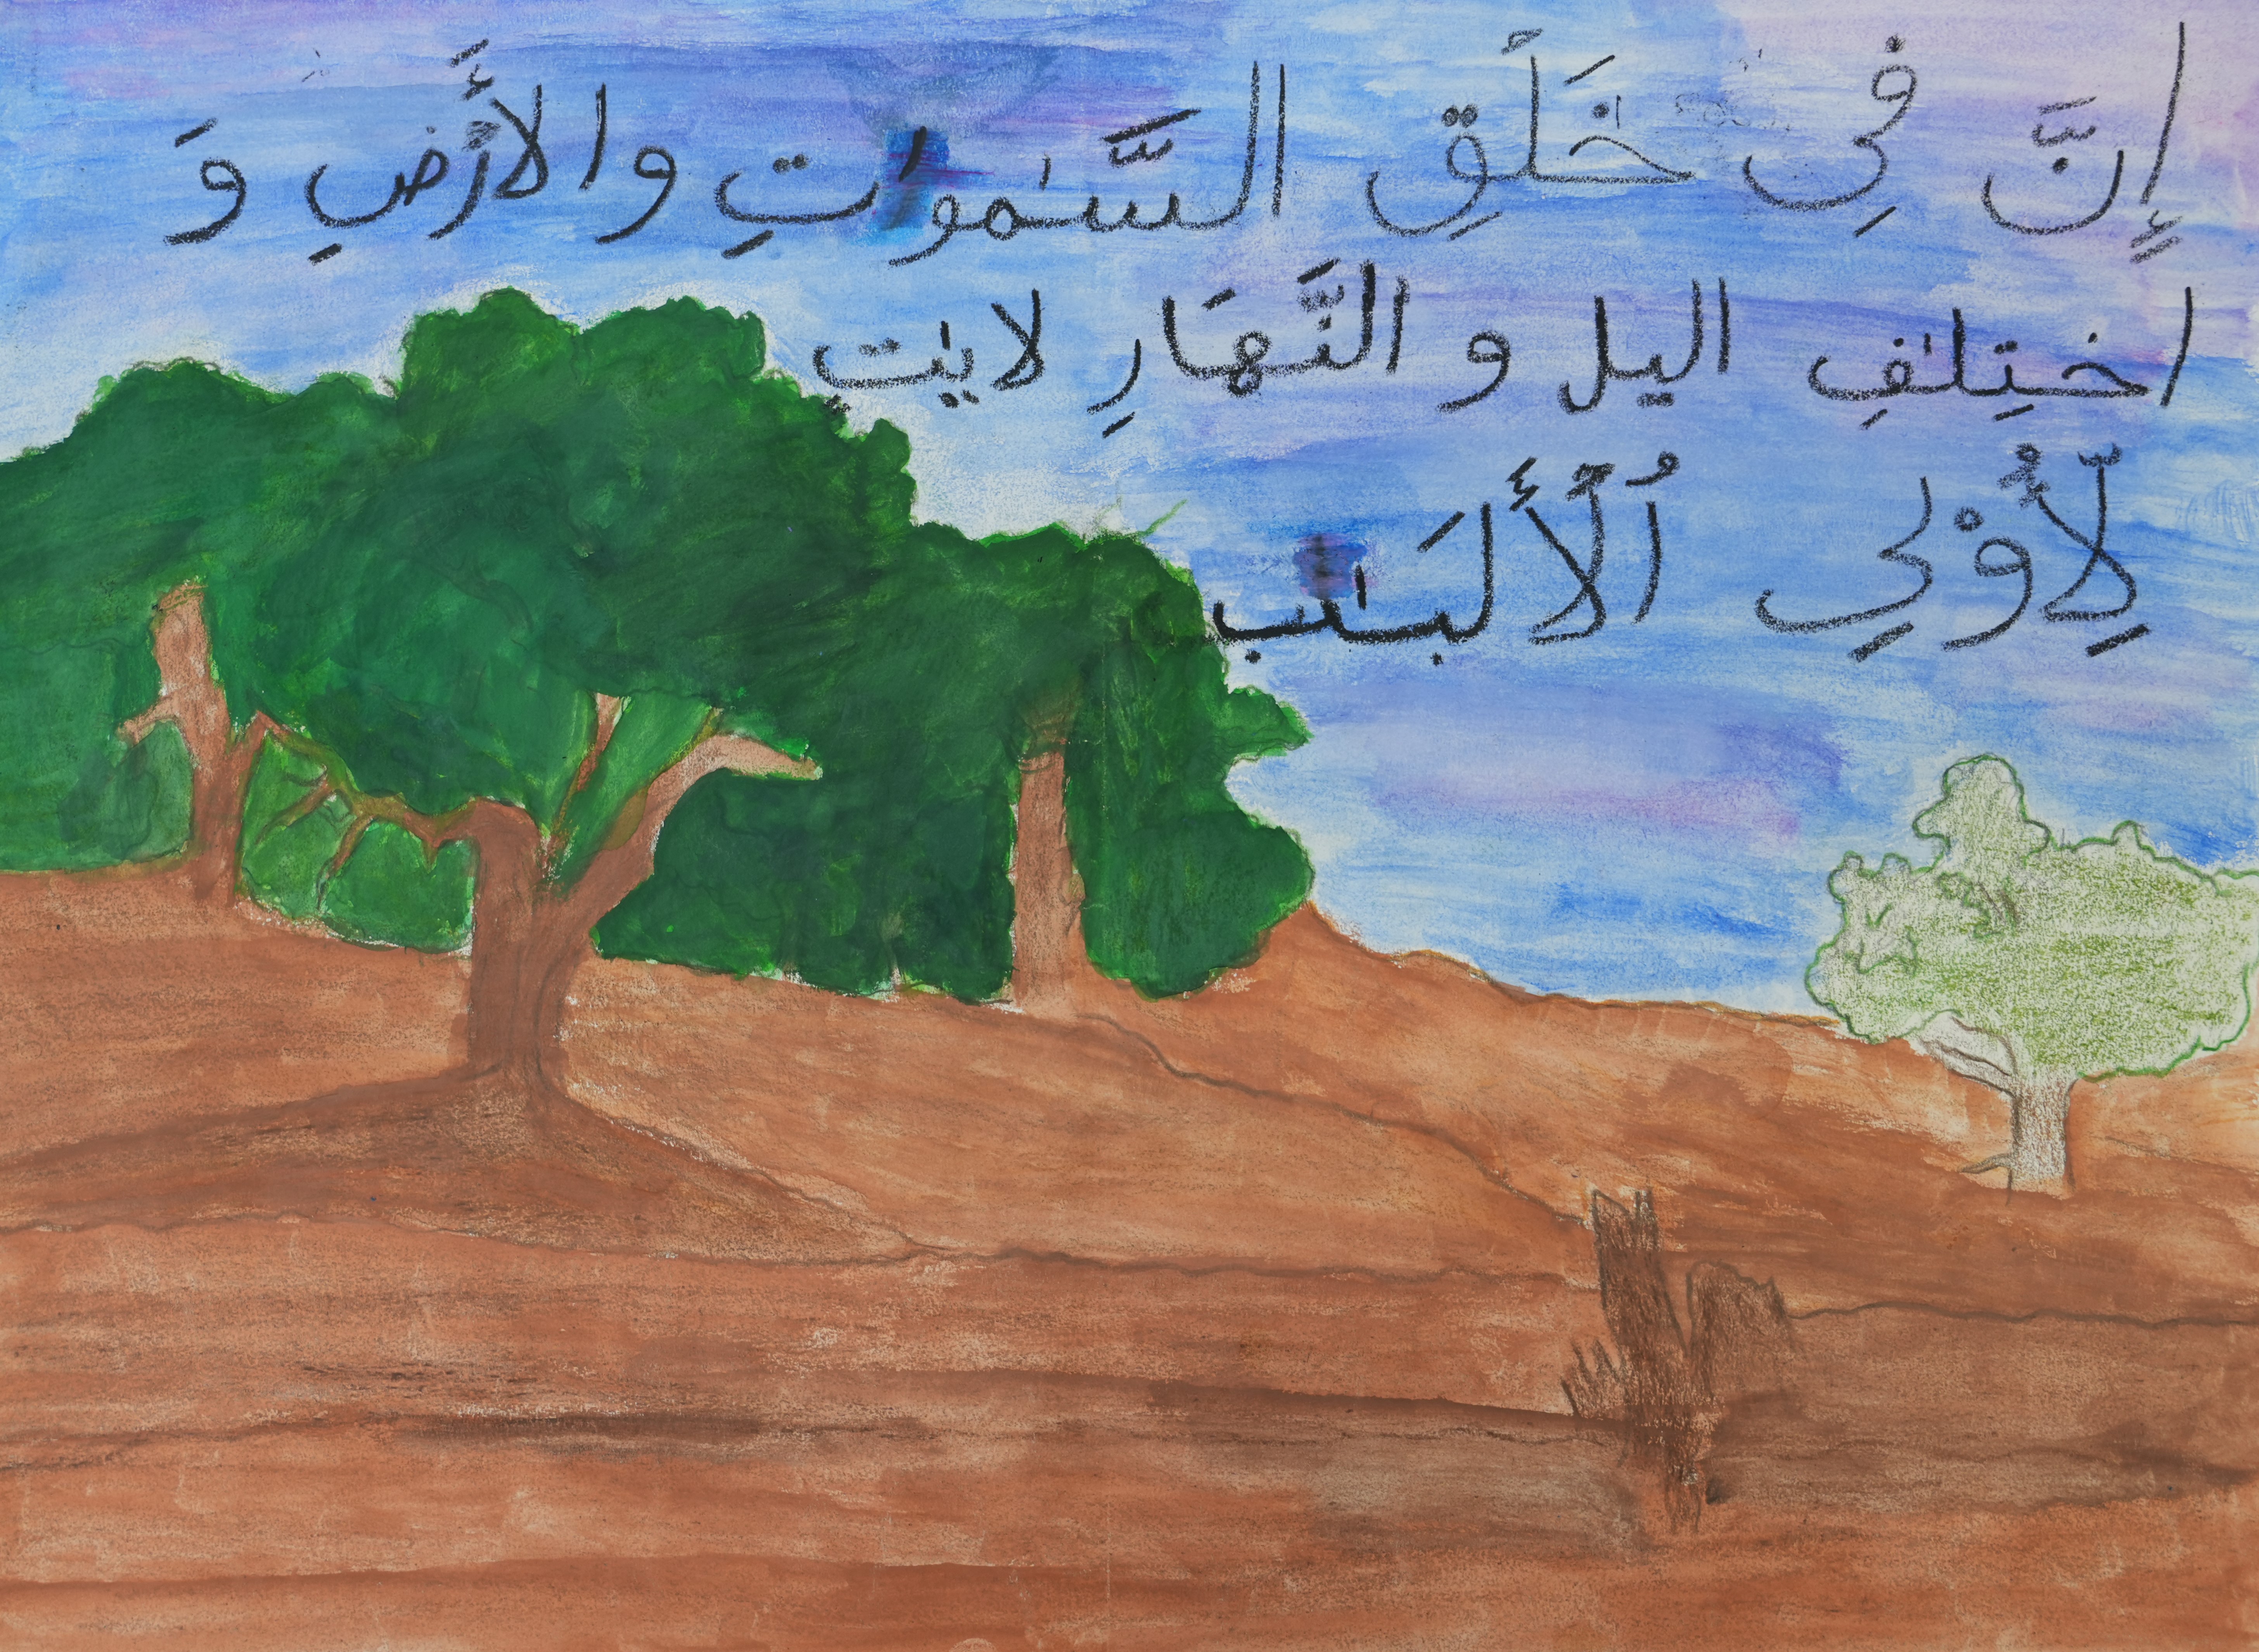 إِنَّ فِي خَلَقِ السَّمٰوٰتِ والأَرْضِ وَ
اختِلٰفِ اليل و النَّهَارِ لايٰتٍ
لِّأُوْلِي ٱلْأَلبَٰب